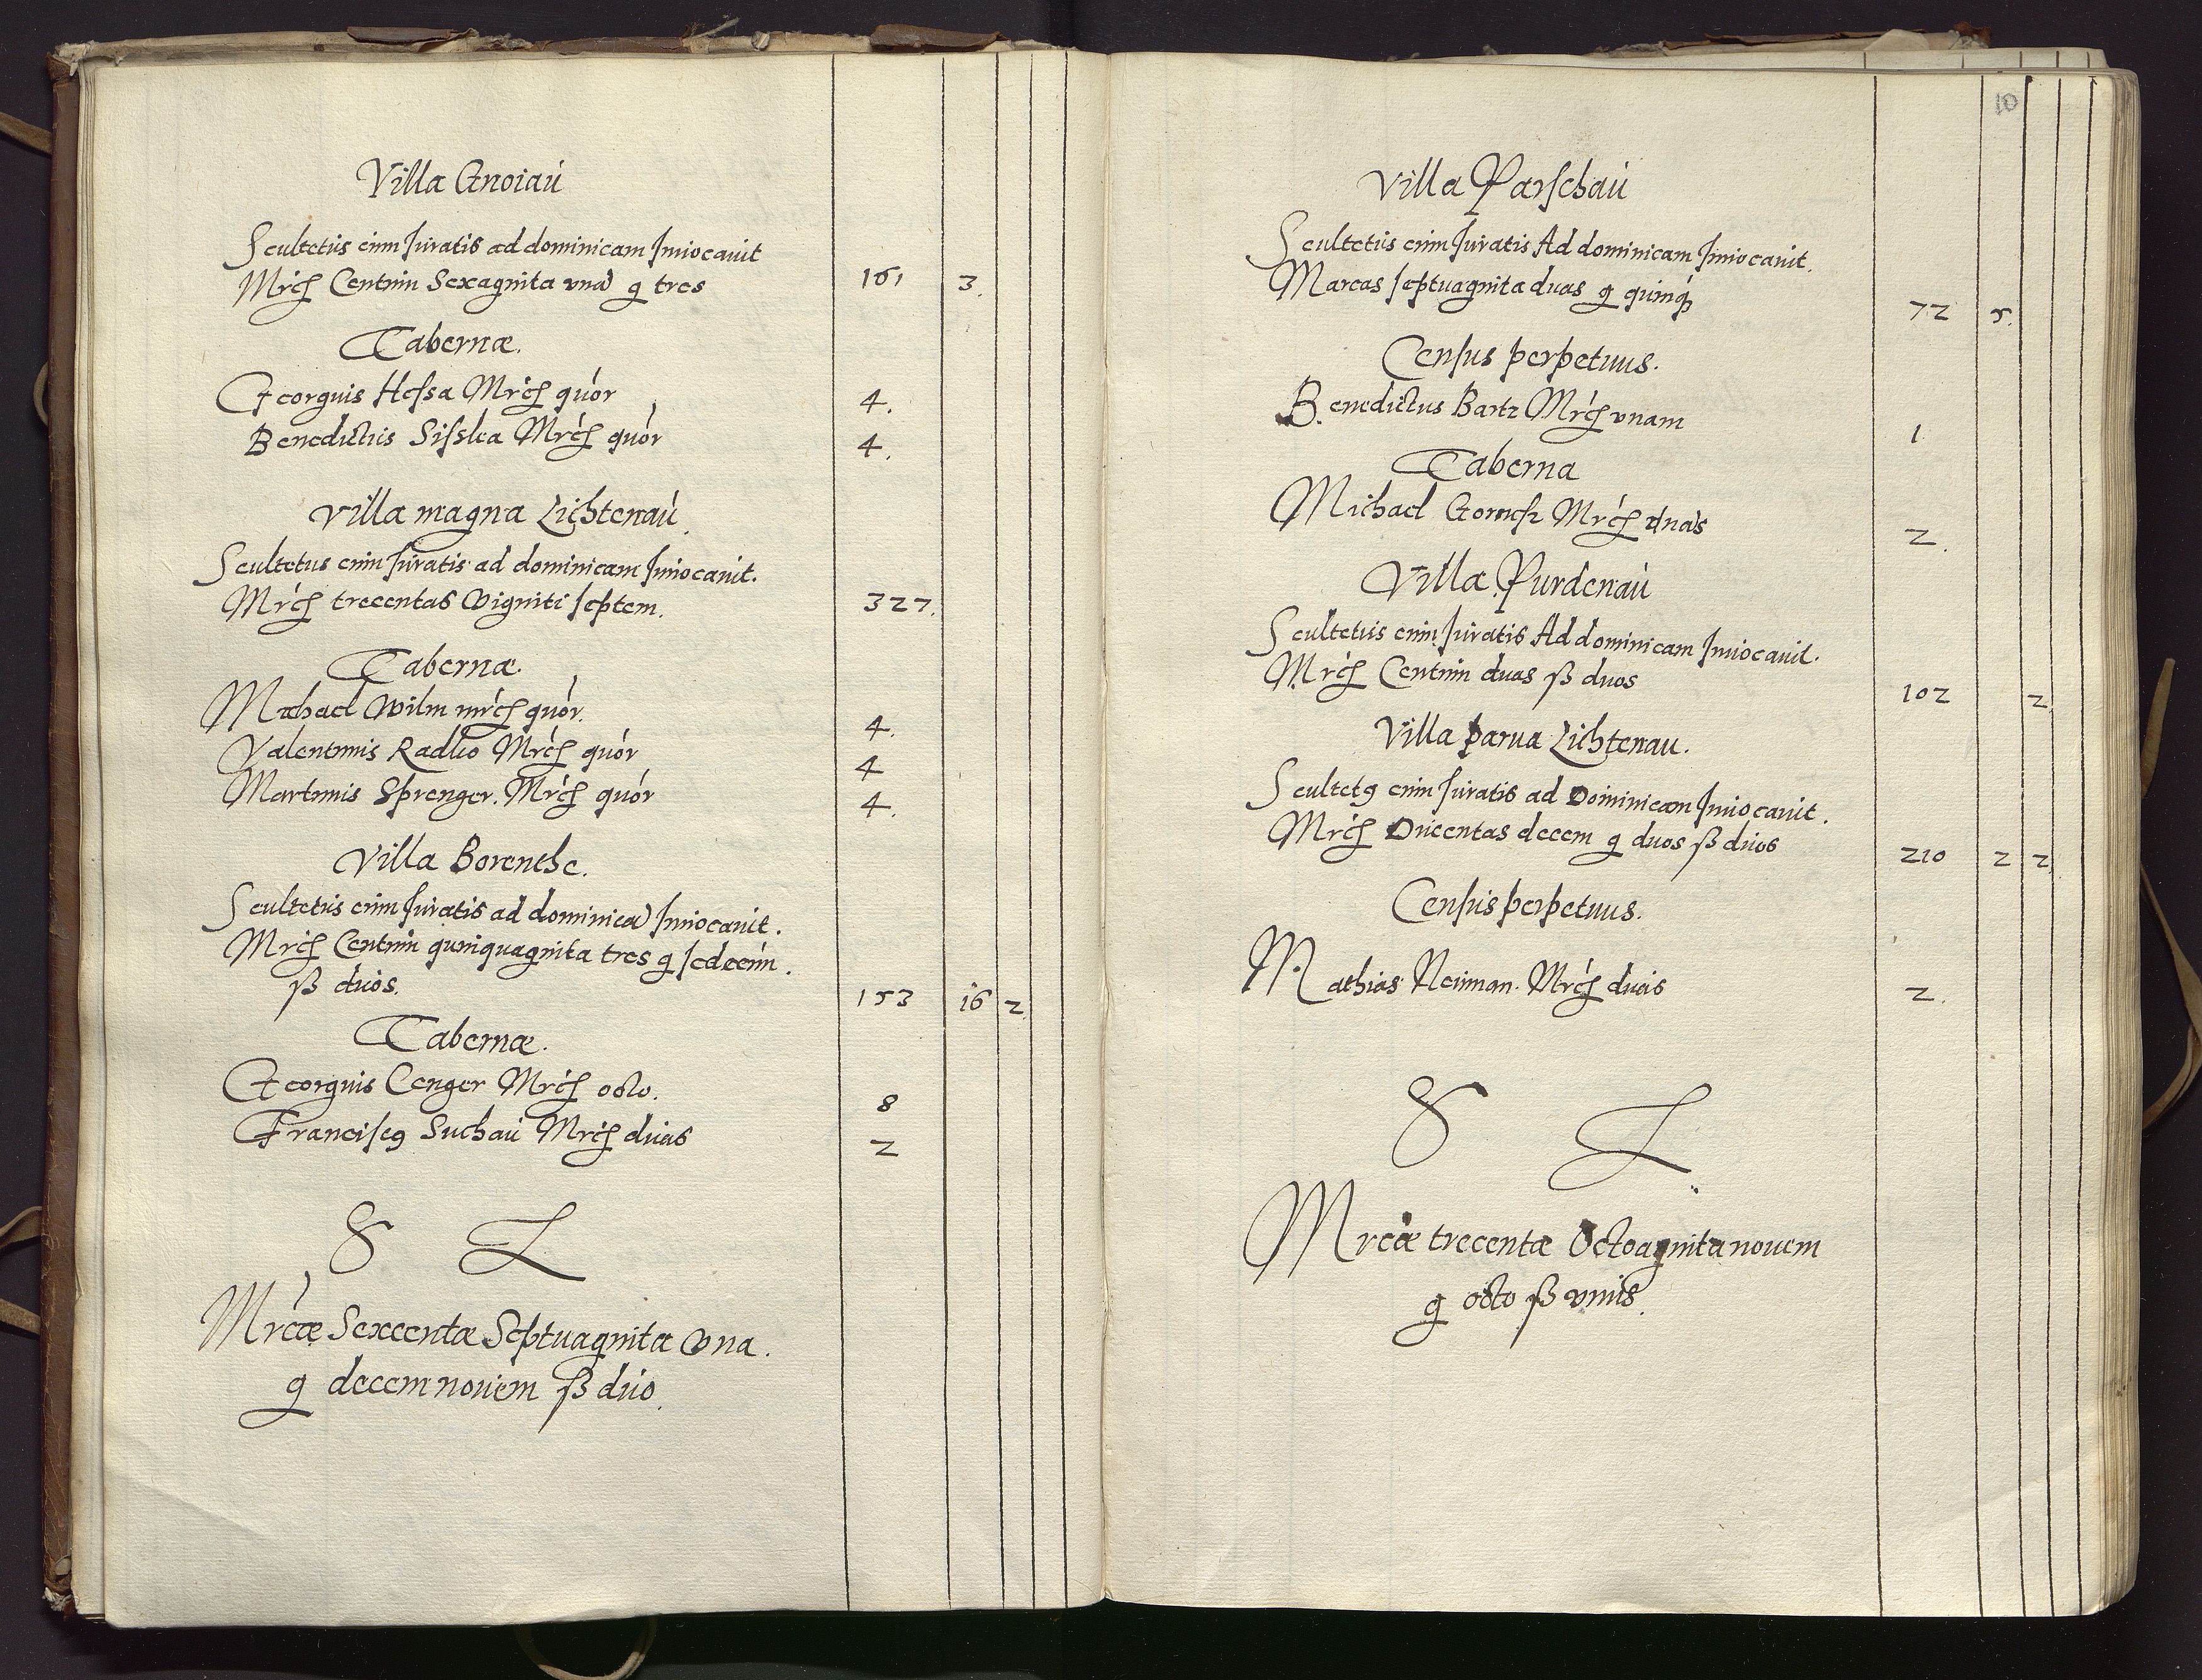 Villa Gnoiaú
Scultetús cum Juratis ad dominicam Jnuocauit
Mrcs Centum Sexaginta vna g tres 161 3.
Tabernæ.
Georgius Hessa Mrcs quor 4.
Benedictús Sisslea Mrcs quor 4.
Villa magna Lichtenaú
Scultetus cum Juratis ad dominicam Jnuocauit.
Mrcs trecentas Viginti septem. 327.
Tabernæ
Michael Wilm mrcs quor. 4.
Valentinus Radko Mrcs quor 4
Martinus Sprenger. Mrcs quor 4.
Villa Borenthe.
Scultetús cum Juratis ad dominica Jnuocauit.
Mrcs Centum quinquaginta tres g sedecim.
ß duos. 153 16 2.
Tabernæ.
Georgius Cenger Mrcs octo. 8
Francisc9 Suchaú Mrcs duas 2
S L
Mrcæ Sexcentæ Septuaginta vna.
g decemnouem ß duo.
10
Villa Parschaú
Scultetús cum Juratis Ad dominicam Jnuocauit.
Marcas septuaginta duas g quinq 72 5.
Census perpetuus.
Benedictus Bartz Mrcs vnam 1
Taberna
Michael Mrcs duas 2.
Villa Purdenaú
Scultetús cum Juratis Ad dominicam Jnuocauit.
Mrcs Centum duas ß duos 102 2.
Villa parua Lichtenau.
Scultet9 cum Juratis ad Dominicam Jnuocauit.
Mrcs Ducentas decem g duos ß duos 210 2 2.
Census perpetuus.
Mathias Neuman. Mrcs duas 2.
S L
Mrcæ trecentæ Octoaginta nouem
g octo ß vnus.